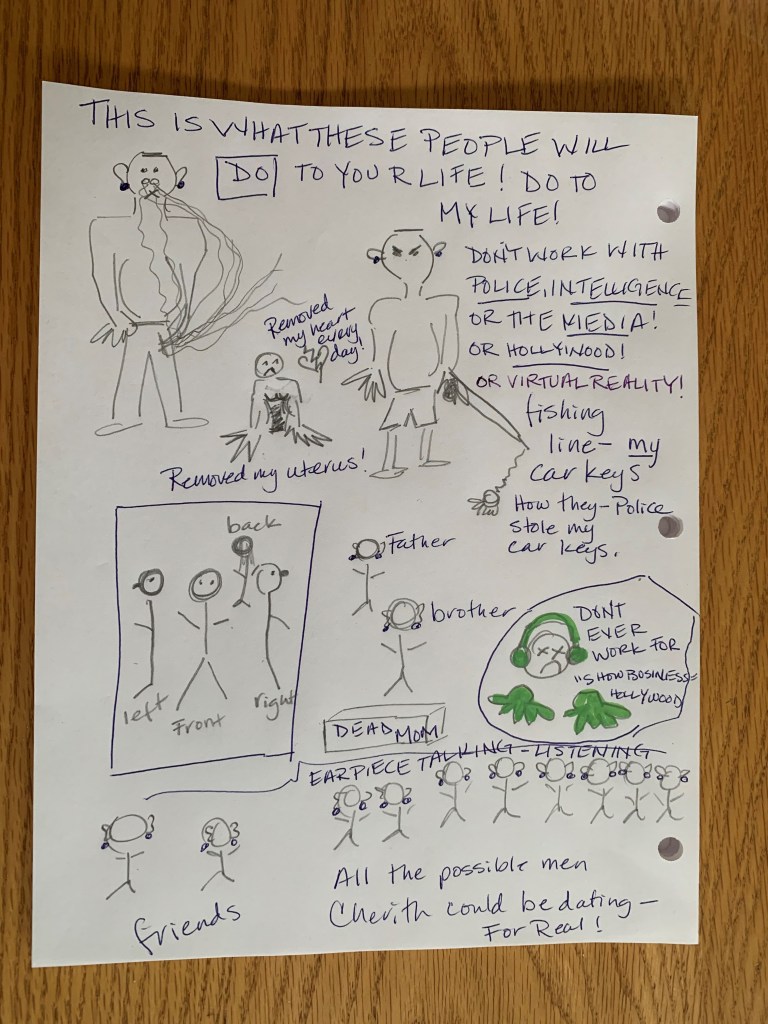 THIS IS WHAT THESE PEOPLE WILL
DO TO YOUR LIFE! DO TO
MY LIFE!
DON'T WORK WITH
POLICE, INTELLIGENCE
OR THE MEDIA!
OR HOLLYWOOD!
OR VIRTUAL REALITY!
Removed
my heart
every
day!
Removed my uterus!
fishing
line - my
car keys
How they - Police
stole my
car keys.
back
left
Front
right
Father
brother
DEAD MOM
DONT
EVER
WORK FOR
"SHOW BUSINESS =
HOLLYWOOD
EARPIECE TALKING - LISTENING
friends
All the possible men
Cherith could be dating -
For Real!